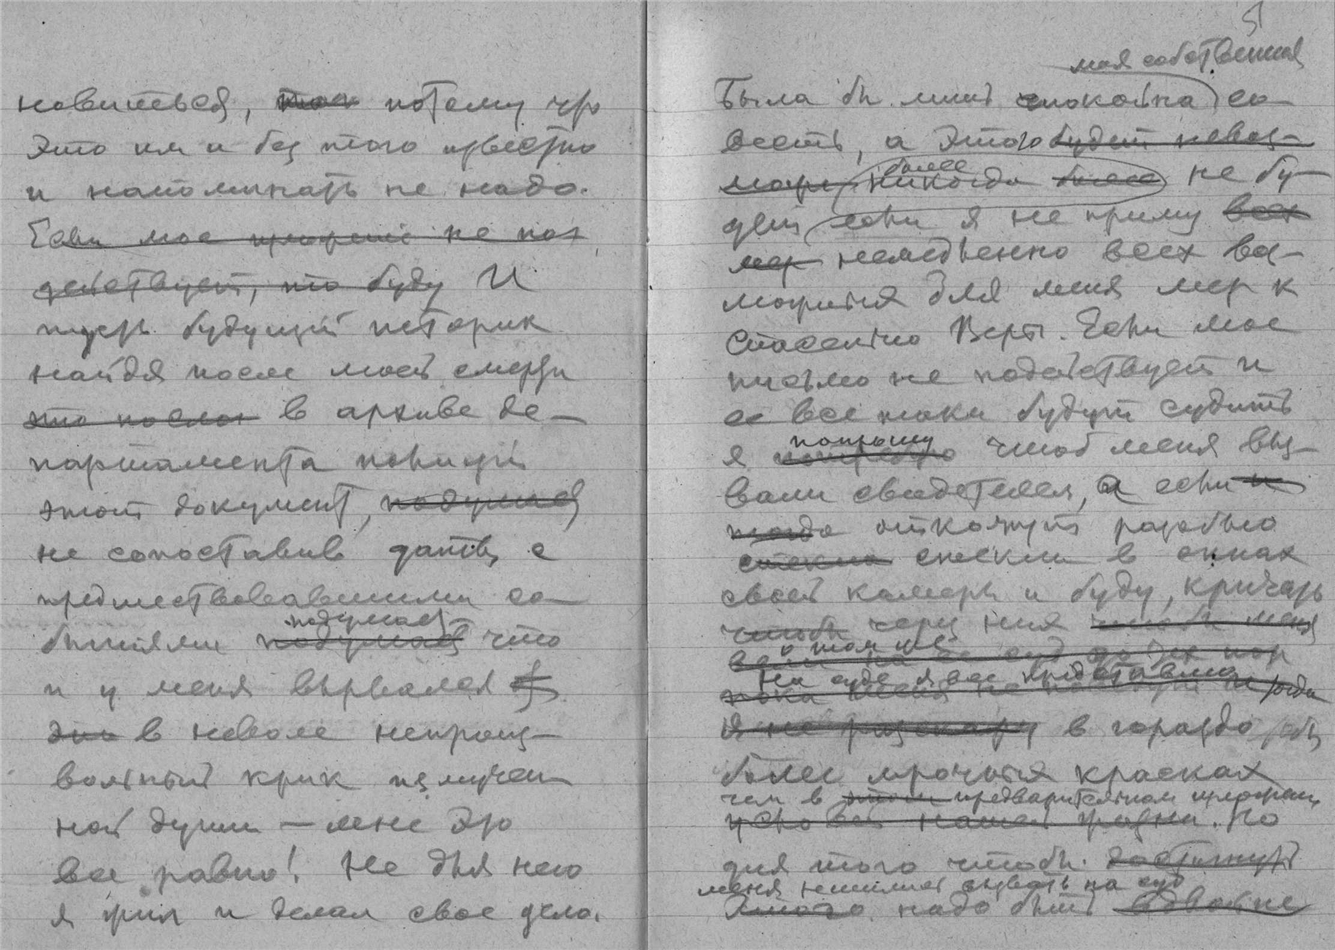 новиться, потому что
это им и без того известно
и напоминать не надо.
Если мое прошение не под
действует, то буду И
пусть будущий историк
найдя после моей смерти
это послан в архиве де-
партамента полиции
этот документ, подумает
не сопоставив даты с
предшествовавшими со-
подумает
бытиями подумает что
и у меня вырвался
в неволе непроиз-
вольный крик измучен
ной души — мне это
все равно! Не для него
я жил и делал свое дело.
51
моя собственная
Была бы лишь спокойна со-
весть, а этого будет невоз-
более
можн никогда более не бу-
дет если я не приму всех
мер немедленно всех воз-
можных для меня мер к
спасению Веры. Если мое
письмо не подействует и
ее все таки будут судить
попрошу
я потребую чтоб меня выз-
вали свидетелем, а если
тогда откажут разобью
стекла стекла в окнах
своей камеры и буду кричать
чтобы через них чтобы меня
о том же
На суде я все представлю
пока меня не
Я не расскажу в гораздо
более мрачных красках
чем в этом предварительном
условий нашей жизни. Но
для того чтобы достигнуть
меня вызвать на суд
этого надо быть вдвойне